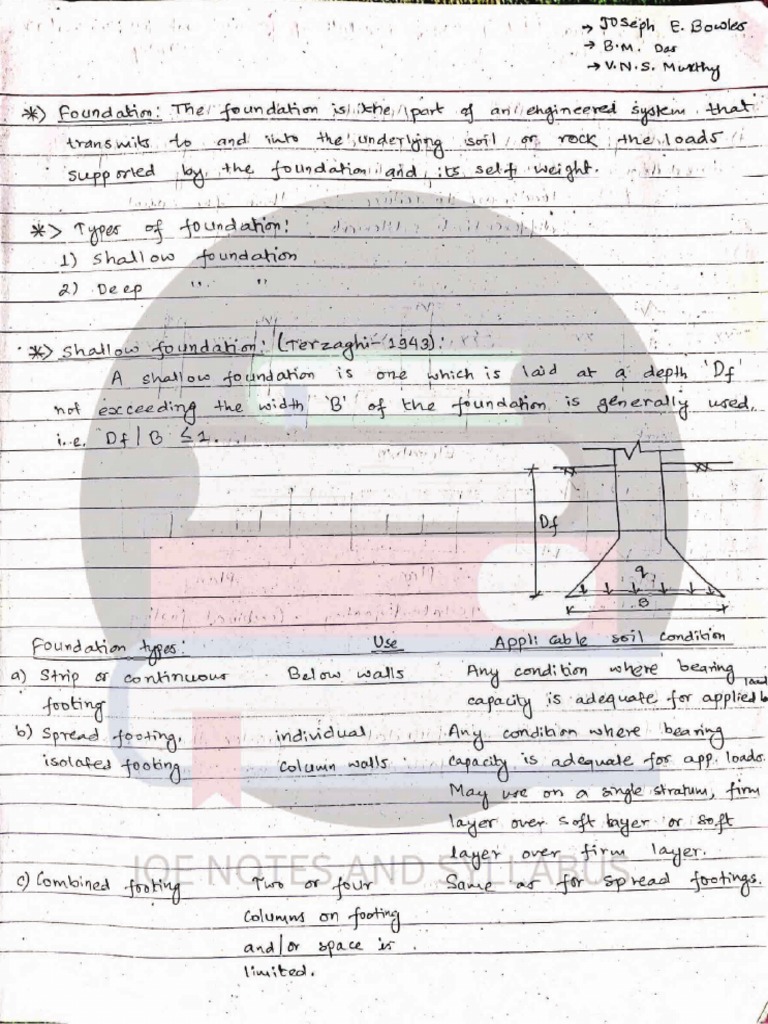 → Joseph E. Bowles
→ B.M. Das
→ V.N.S. Murthy
*) Foundation: The foundation is the part of an engineered system that
transmits to and into the underlying soil or rock the loads
supported by the foundation and its self weight.
*> Types of foundation:
1) Shallow foundation
2) Deep " "
*) Shallow foundation: (Terzaghi-1943):
A shallow foundation is one which is laid at a depth 'Df'
not exceeding the width 'B' of the foundation is generally used.
i.e. Df/B ≤1.
Df
q
B
Foundation types: Use Applicable soil condition
a) Strip or continuous Below walls Any condition where bearing
footing capacity is adequate for applied load
b) Spread footing, individual Any condition where bearing
isolated footing column walls capacity is adequate for app. loads.
May use on a single stratum, firm
layer over soft layer or soft
layer over firm layer.
IOE NOTES AND SYLLABUS
c) Combined footing Two or four Same as for spread footings.
columns on footing
and/or space is
limited.